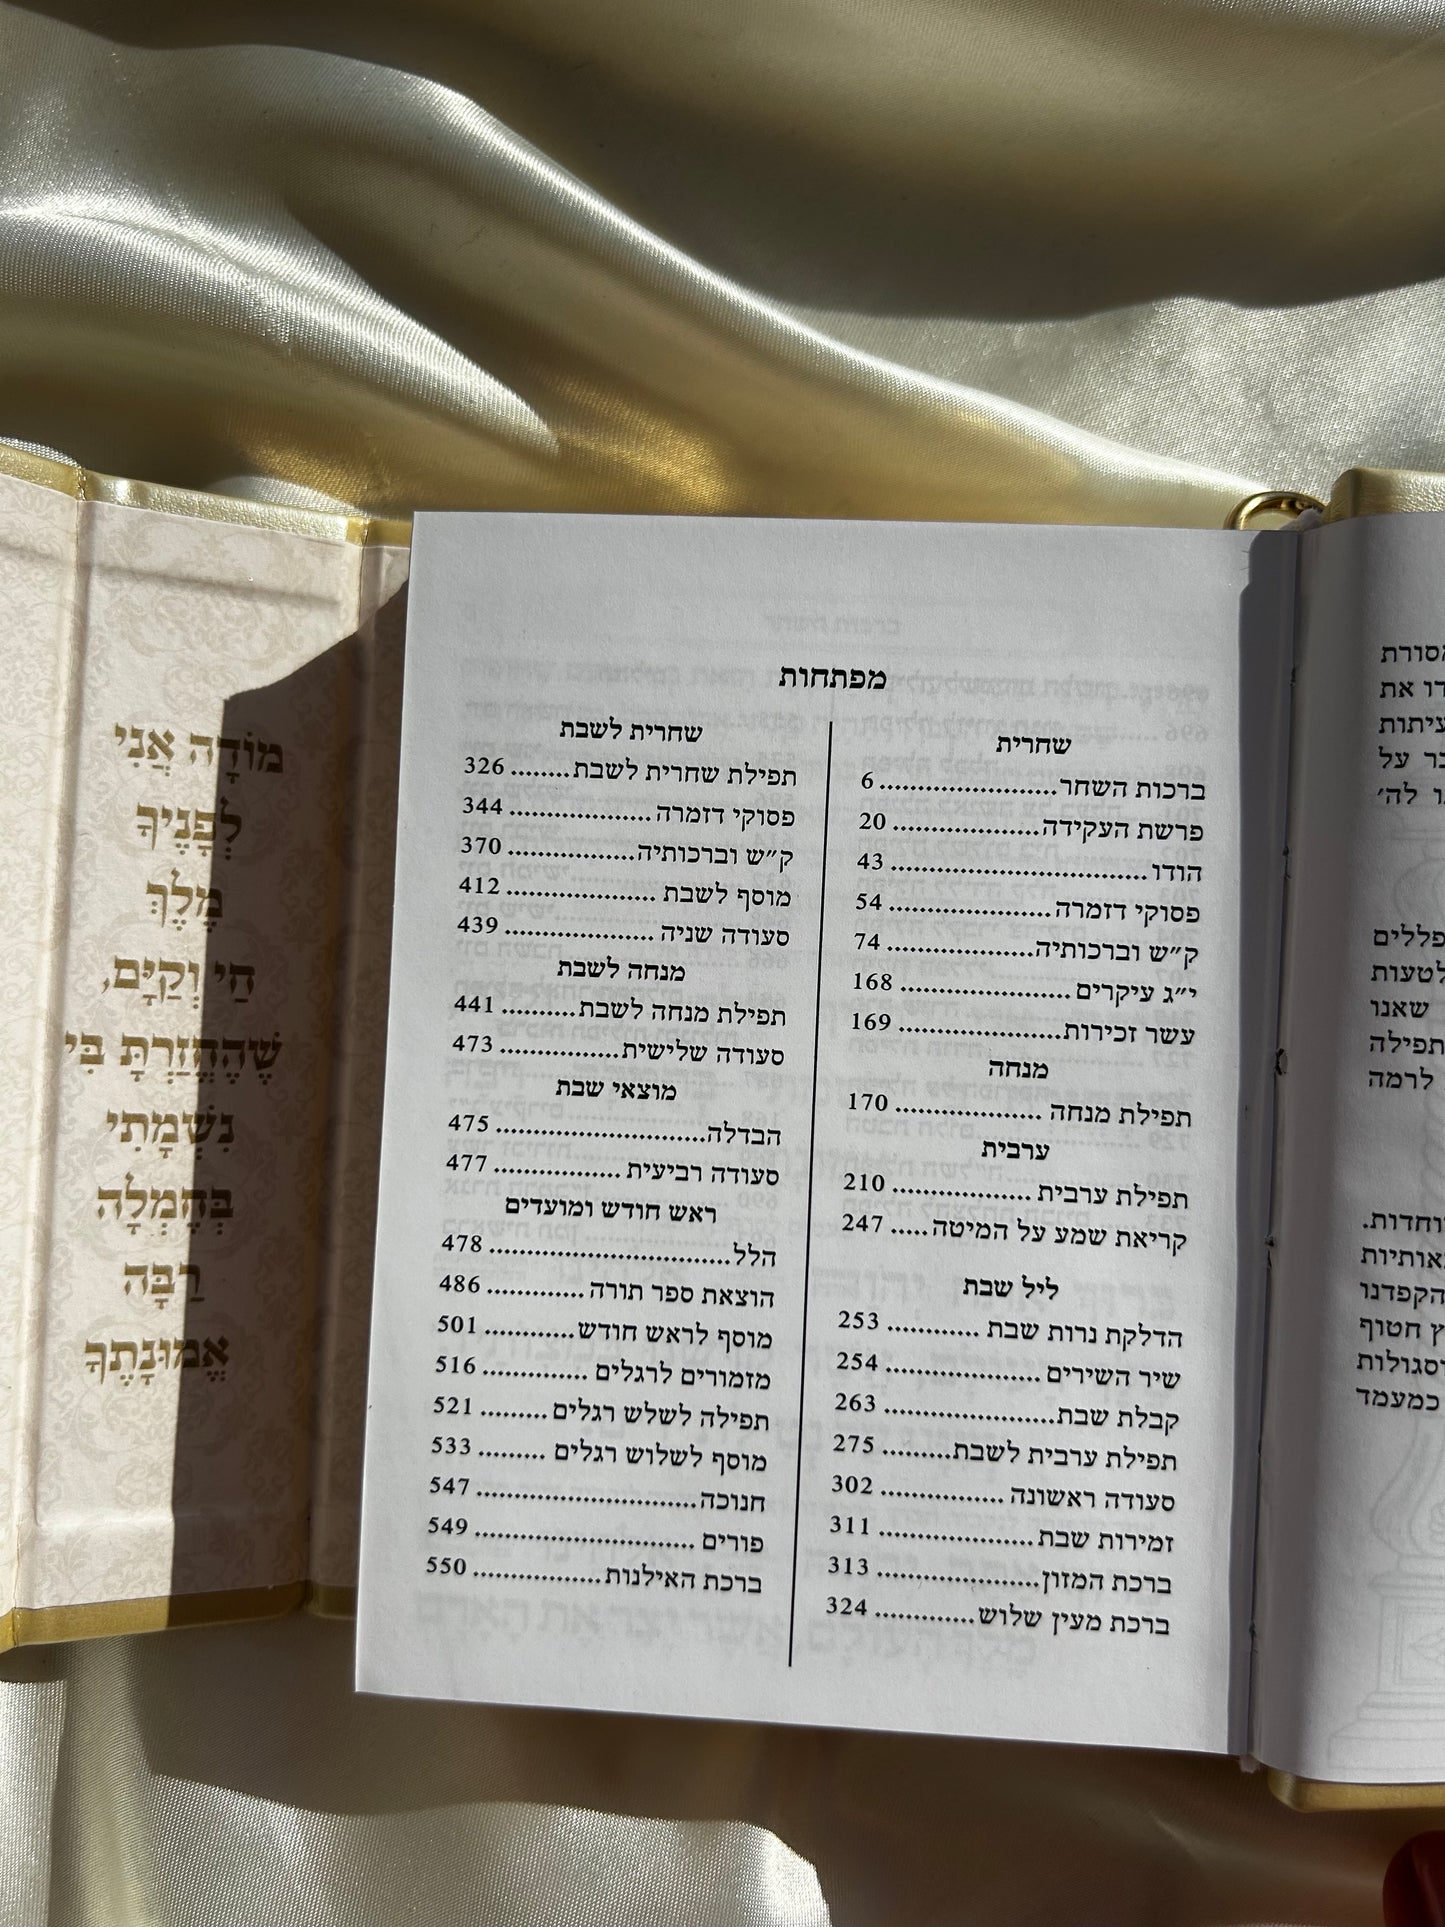 מפתחות
שחרית
ברכות השחר........................ 6
פרשת העקידה.................... 20
הודו................................... 43
פסוקי דזמרה...................... 54
ק״ש וברכותיה.................... 74
י״ג עיקרים....................... 168
עשר זכירות...................... 169
מנחה
תפילת מנחה .................... 170
ערבית
תפילת ערבית ................... 210
קריאת שמע על המיטה..... 247
ליל שבת
הדלקת נרות שבת ............ 253
שיר השירים...................... 254
קבלת שבת....................... 263
תפילת ערבית לשבת......... 275
סעודה ראשונה ................. 302
זמירות שבת..................... 311
ברכת המזון...................... 313
ברכת מעין שלוש............. 324
שחרית לשבת
תפילת שחרית לשבת........ 326
פסוקי דזמרה.................... 344
ק״ש וברכותיה.................. 370
מוסף לשבת ..................... 412
סעודה שניה ..................... 439
מנחה לשבת
תפילת מנחה לשבת.......... 441
סעודה שלישית................. 473
מוצאי שבת
הבדלה............................. 475
סעודה רביעית .................. 477
ראש חודש ומועדים
הלל.................................. 478
הוצאת ספר תורה ............. 486
מוסף לראש חודש............. 501
מזמורים לרגלים ............... 516
תפילה לשלש רגלים.......... 521
מוסף לשלוש רגלים .......... 533
חנוכה............................... 547
פורים ............................... 549
ברכת האילנות.................. 550
מוֹדָה אֲנִי
לְפָנֶיךָ
מֶלֶךְ
חַי וְקַיָּם,
שֶׁהֶחֱזַרְתָּ בִּי
נִשְׁמָתִי
בְּחֶמְלָה
רַבָּה
אֱמוּנָתֶךָ
את
על
לה׳
שאנו
תפילה
לרמה
חטוף
כמעמד